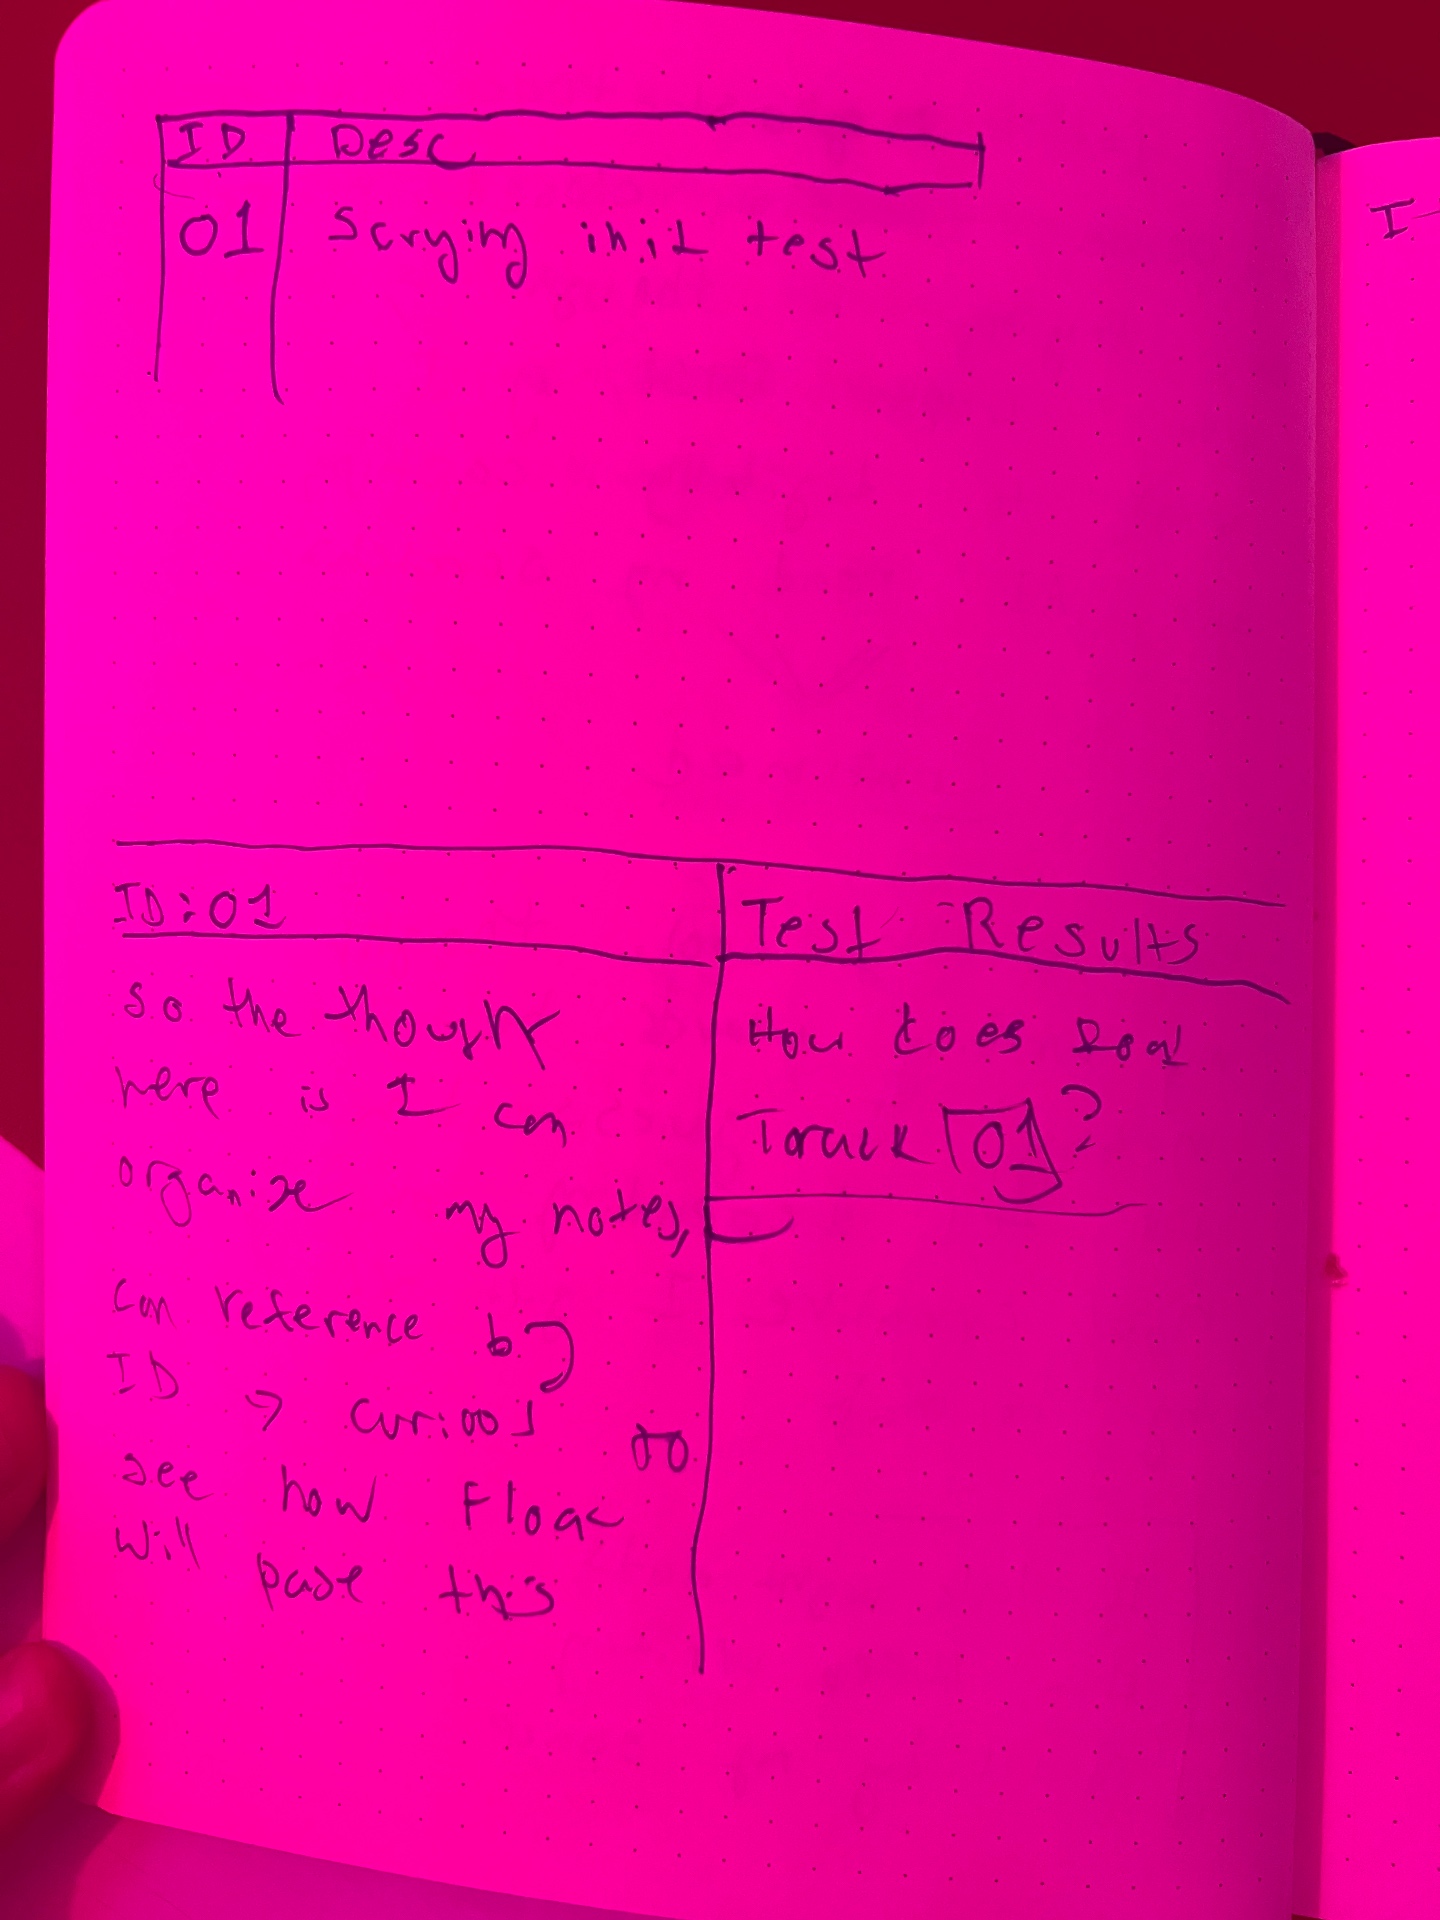 ID Desc
01 Scrying init test
ID: 01
so the thought
here is I can
organize my notes,
can reference by
ID → curious to
see how Float
will parse this
Test Results
How does
Track 01?
I